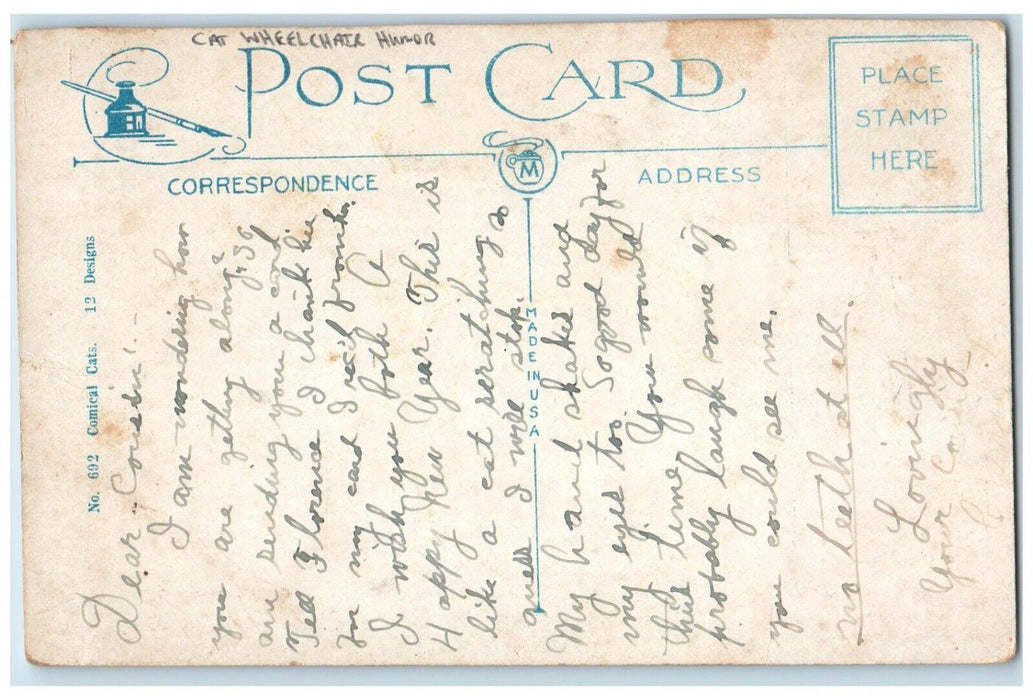 CAT WHEELCHAIR HUMOR
POST CARD
PLACE
STAMP
HERE
M
CORRESPONDENCE
ADDRESS
No. 692 Comical Cats. 12 Designs
MADE IN USA
Dear Cousin:-
I am wondering how
you are getting along? So
am sending you a card
Tell Florence I thank her
for my card I rec'd from her.
I wish you both A
Happy New Year. This is
like a cat scratching so
guess I will stop.
My hand shakes and
my eyes too. So good day for
this time. You would
probably laugh some if
you could see me.
no teeth at all.
Lovingly
Your Cousin